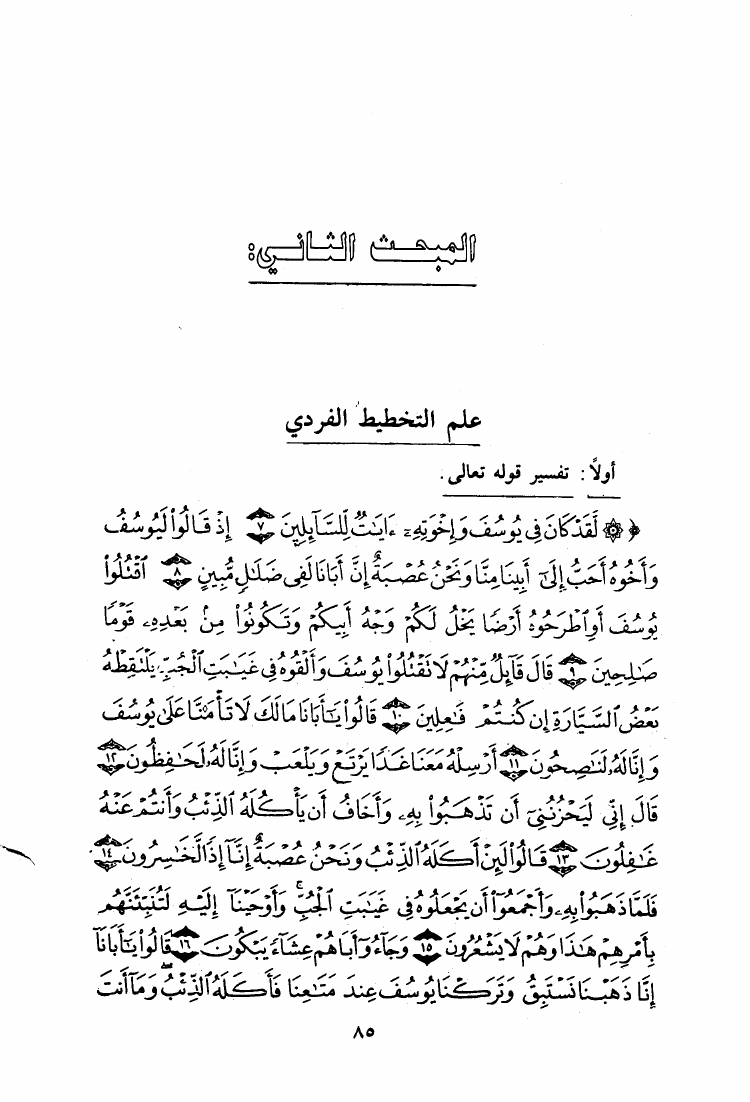 المبحث الثاني:
علم التخطيط الفردي
أولاً: تفسير قوله تعالى.
﴿ ۞ لَّقَدْ كَانَ فِى يُوسُفَ وَإِخْوَتِهِۦٓ ءَايَٰتٌ لِّلسَّآئِلِينَ ٧ إِذْ قَالُوا۟ لَيُوسُفُ
وَأَخُوهُ أَحَبُّ إِلَىٰٓ أَبِينَا مِنَّا وَنَحْنُ عُصْبَةٌ إِنَّ أَبَانَا لَفِى ضَلَٰلٍ مُّبِينٍ ٨ ٱقْتُلُوا۟
يُوسُفَ أَوِ ٱطْرَحُوهُ أَرْضًا يَخْلُ لَكُمْ وَجْهُ أَبِيكُمْ وَتَكُونُوا۟ مِنۢ بَعْدِهِۦ قَوْمًا
صَٰلِحِينَ ٩ قَالَ قَآئِلٌ مِّنْهُمْ لَا تَقْتُلُوا۟ يُوسُفَ وَأَلْقُوهُ فِى غَيَٰبَتِ ٱلْجُبِّ يَلْتَقِطْهُ
بَعْضُ ٱلسَّيَّارَةِ إِن كُنتُمْ فَٰعِلِينَ ١٠ قَالُوا۟ يَٰٓأَبَانَا مَالَكَ لَا تَأْمَ۫نَّا عَلَىٰ يُوسُفَ
وَإِنَّا لَهُۥ لَنَٰصِحُونَ ١١ أَرْسِلْهُ مَعَنَا غَدًا يَرْتَعْ وَيَلْعَبْ وَإِنَّا لَهُۥ لَحَٰفِظُونَ ١٢
قَالَ إِنِّى لَيَحْزُنُنِىٓ أَن تَذْهَبُوا۟ بِهِۦ وَأَخَافُ أَن يَأْكُلَهُ ٱلذِّئْبُ وَأَنتُمْ عَنْهُ
غَٰفِلُونَ ١٣ قَالُوا۟ لَئِنْ أَكَلَهُ ٱلذِّئْبُ وَنَحْنُ عُصْبَةٌ إِنَّآ إِذًا لَّخَٰسِرُونَ ١٤
فَلَمَّا ذَهَبُوا۟ بِهِۦ وَأَجْمَعُوٓا۟ أَن يَجْعَلُوهُ فِى غَيَٰبَتِ ٱلْجُبِّ وَأَوْحَيْنَآ إِلَيْهِ لَتُنَبِّئَنَّهُم
بِأَمْرِهِمْ هَٰذَا وَهُمْ لَا يَشْعُرُونَ ١٥ وَجَآءُوٓ أَبَاهُمْ عِشَآءً يَبْكُونَ ١٦ قَالُوا۟ يَٰٓأَبَانَآ
إِنَّا ذَهَبْنَا نَسْتَبِقُ وَتَرَكْنَا يُوسُفَ عِندَ مَتَٰعِنَا فَأَكَلَهُ ٱلذِّئْبُ وَمَآ أَنتَ
٨٥